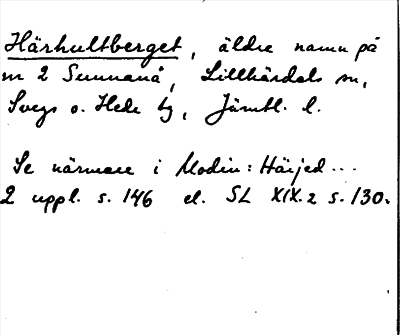 Härhultberget, äldre namn på
m 2 Sunnanå, Lillhärdals sn,
Svegs o. Hede tg, Jämtl. l.
Se närmare i Modin: Härjed...
2 uppl. s. 146 el. SL XIX.2 s. 130.